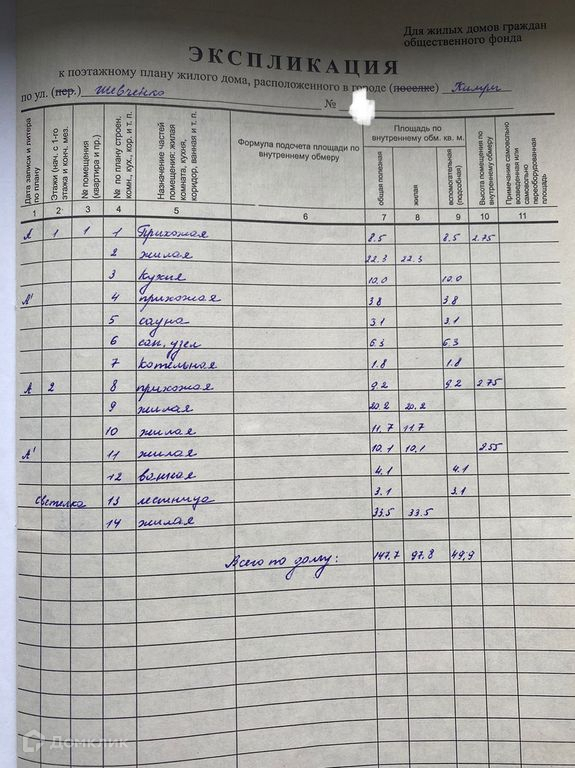 Для жилых домов граждан
общественного фонда
ЭКСПЛИКАЦИЯ
к поэтажному плану жилого дома, расположенного в городе (поселке) Кимры
по ул. (пер.) Шевченко №
Дата записи и литера по плану
Этажи (нач. с 1-го этажа и конч. мез.
№ помещения (квартира и пр.)
№ по плану строен. комн., кух., кор. и т. п.
Назначение частей помещения: жилая комната, кухня, коридор, ванная и т. п.
Формула подсчета площади по внутреннему обмеру
Площадь по внутреннему обм. кв. м.
общая полезная
жилая
вспомогательная (подсобная)
Высота помещения по внутреннему обмеру
Примечание самовольно возведенная или самовольно переоборудованная площадь
1 2 3 4 5 6 7 8 9 10 11
А 1 1 1 Прихожая 8.5 8.5 2.75
2 жилая 22.3 22.3
3 Кухня 10.0 10.0
А' 4 прихожая 3.8 3.8
5 сауна 3.1 3.1
6 сан, узел 6.3 6.3
7 котельная 1.8 1.8
А 2 8 прихожая 9.2 9.2 2.75
9 жилая 20.2 20.2
10 жилая 11.7 11.7
А' 11 жилая 10.1 10.1 2.55
12 ванная 4.1 4.1
Светелка 13 лестница 3.1 3.1
14 жилая 33.5 33.5
Всего по дому: 147.7 97.8 49,9
Домклик